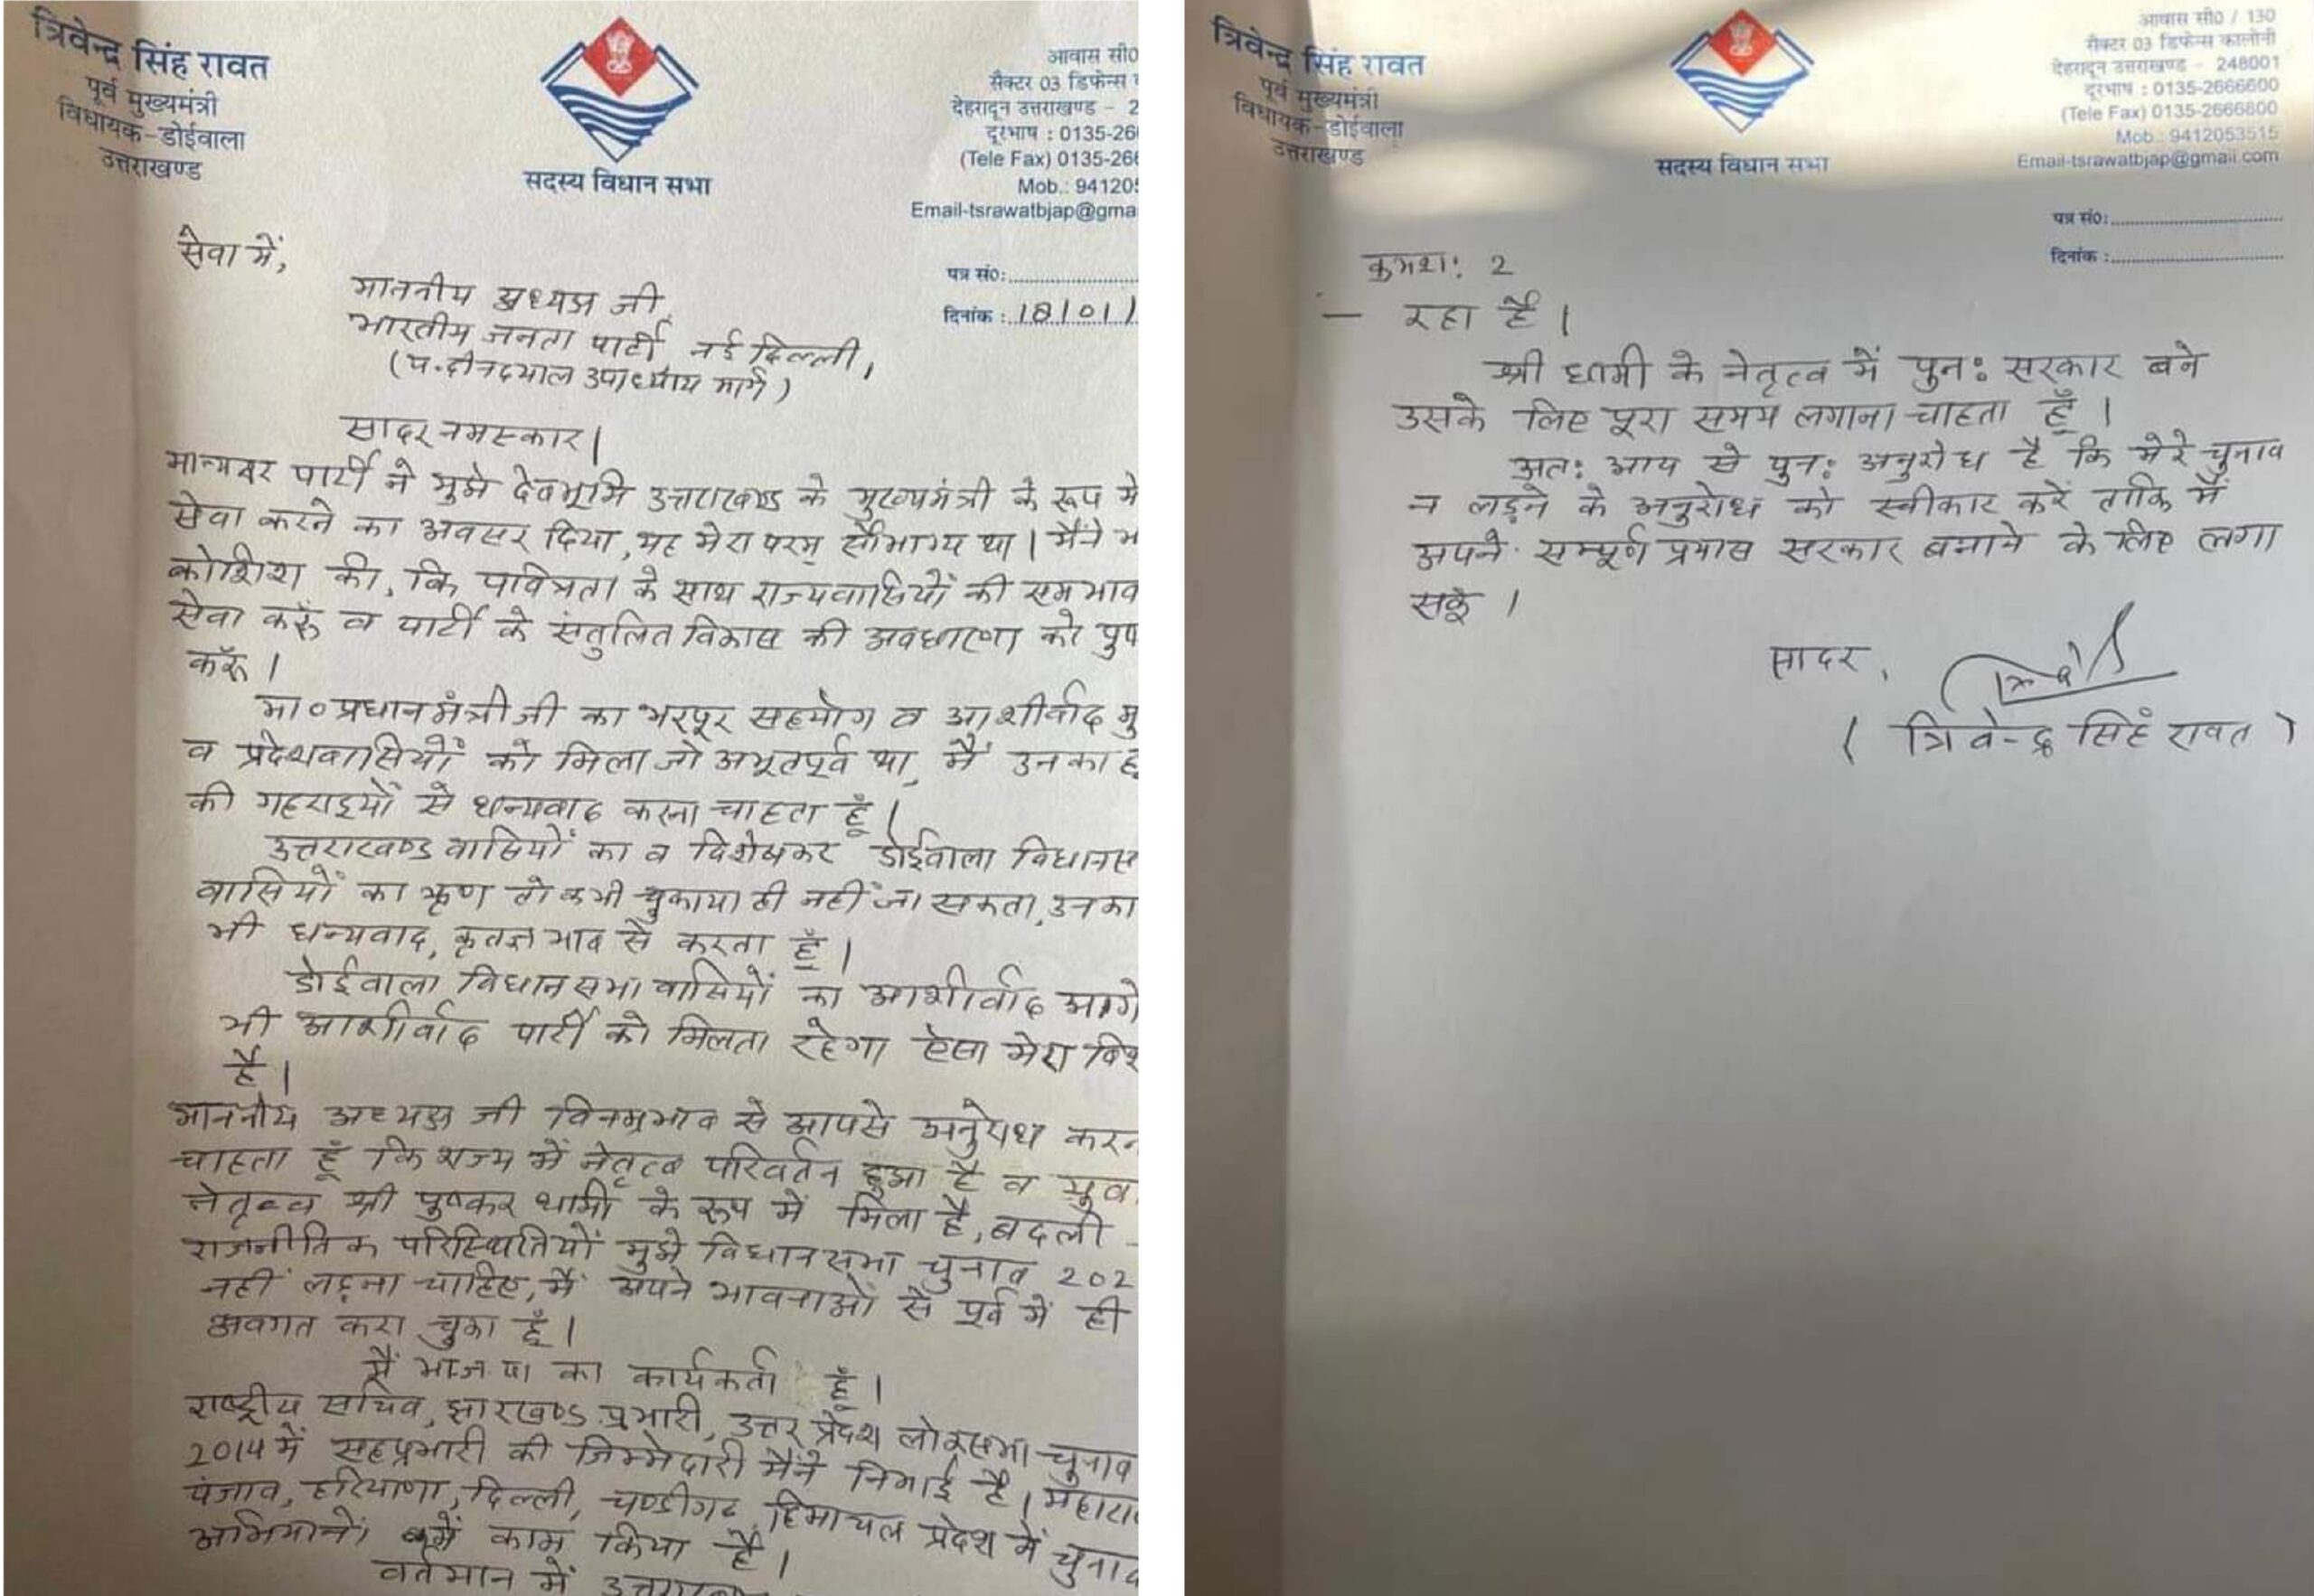 त्रिवेन्द्र सिंह रावत
पूर्व मुख्यमंत्री
विधायक-डोईवाला
उत्तराखण्ड
सदस्य विधान सभा
आवास सी0
सैक्टर 03 डिफेन्स
देहरादून उत्तराखण्ड - 2
दूरभाष : 0135-26
(Tele Fax) 0135-266
Mob.: 94120
Email-tsrawatbjap@gma
पत्र सं0:
दिनांक : 18/01/
सेवा में,
माननीय अध्यक्ष जी,
भारतीय जनता पार्टी, नई दिल्ली,
(पं.दीनदयाल उपाध्याय मार्ग)
सादर नमस्कार।
मान्यवर पार्टी ने मुझे देवभूमि उत्तराखण्ड के मुख्यमंत्री के रूप में
सेवा करने का अवसर दिया, यह मेरा परम् सौभाग्य था। मैंने
कोशिश की, कि पवित्रता के साथ राज्यवासियों की समभाव
सेवा करूं व पार्टी के संतुलित विकास की अवधारणा को
करूं।
मा० प्रधानमंत्री जी का भरपूर सहयोग व आशीर्वाद
व प्रदेशवासियों को मिला जो अभूतपूर्व था, मैं उनका
की गहराइयों से धन्यवाद करना चाहता हूँ।
उत्तराखण्ड वासियों का व विशेषकर डोईवाला विधानस
वासियों का ऋण तो कभी चुकाया ही नहीं जा सकता, उनका
भी धन्यवाद, कृतज्ञ भाव से करता हूँ।
डोईवाला विधानसभा वासियों का आशीर्वाद आगे
भी आशीर्वाद पार्टी को मिलता रहेगा ऐसा मेरा विश
है।
माननीय अध्यक्ष जी विनम्रभाव से आपसे अनुरोध करन
चाहता हूँ कि राज्य में नेतृत्व परिवर्तन हुआ है व युवा
नेतृत्व श्री पुष्कर धामी के रूप में मिला है, बदली
राजनीतिक परिस्थितियों मुझे विधानसभा चुनाव 202
नहीं लड़ना चाहिए, मैं अपने भावनाओं से पूर्व में ही
अवगत करा चुका हूँ।
मैं भाजपा का कार्यकर्ता हूँ।
राष्ट्रीय सचिव, झारखण्ड प्रभारी, उत्तर प्रदेश लोकसभा चुनाव
2014 में सहप्रभारी की जिम्मेदारी मैंने निभाई है। महारा
पंजाब, हरियाणा, दिल्ली, चण्डीगढ, हिमाचल प्रदेश में चुनाव
अभियानों में काम किया है।
वर्तमान में उत्तराखण
त्रिवेन्द्र सिंह रावत
पूर्व मुख्यमंत्री
विधायक-डोईवाला
उत्तराखण्ड
सदस्य विधान सभा
आवास सी0 / 130
सैक्टर 03 डिफेन्स कालोनी
देहरादून उत्तराखण्ड - 248001
दूरभाष : 0135-2666600
(Tele Fax) 0135-2666800
Mob.: 9412053515
Email-tsrawatbjap@gmail.com
पत्र सं0:
दिनांक :
क्रमशः 2
— रहा है।
श्री धामी के नेतृत्व में पुनः सरकार बने
उसके लिए पूरा समय लगाना चाहता हूँ।
अतः आप से पुनः अनुरोध है कि मेरे चुनाव
न लड़ने के अनुरोध को स्वीकार करें ताकि मैं
अपने सम्पूर्ण प्रयास सरकार बनाने के लिए लगा
सकूं।
सादर,
( त्रिवेन्द्र सिंह रावत )